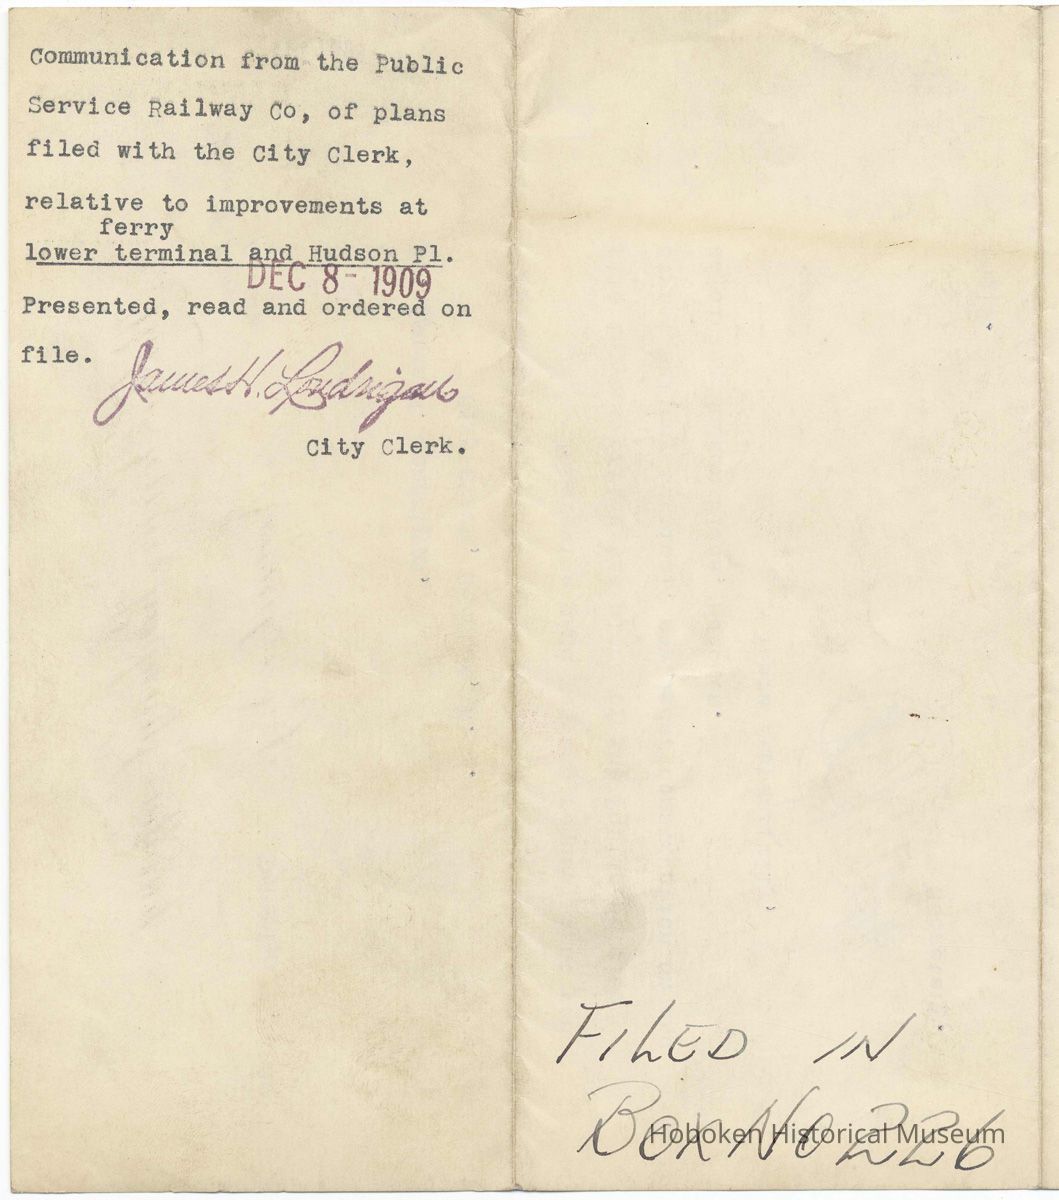 Communication from the Public
Service Railway Co, of plans
filed with the City Clerk,
relative to improvements at
ferry
lower terminal and Hudson Pl.
DEC 8- 1909
Presented, read and ordered on
file.
James H. Londrigan
City Clerk.
FILED IN
BOX NO 226
Hoboken Historical Museum